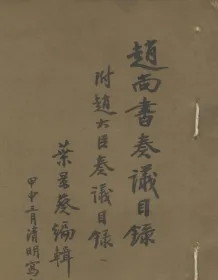 趙尚書奏議目錄
附趙大臣奏議目錄
葉景葵編輯
甲申三月清明寫